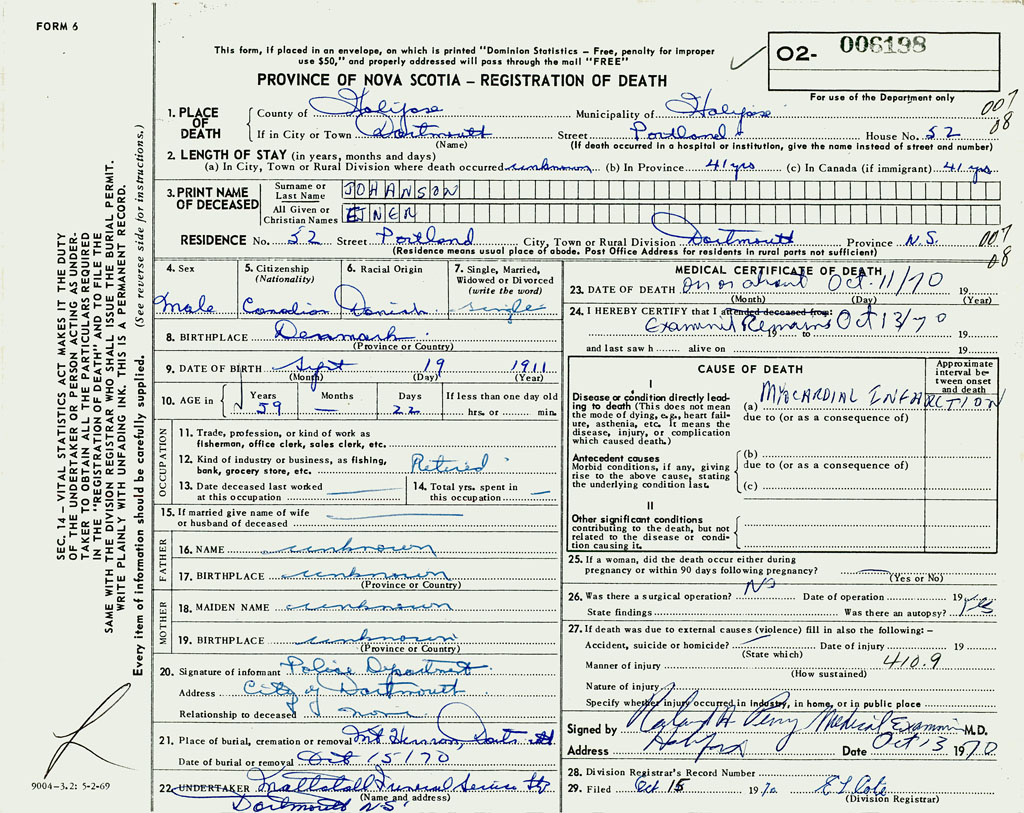 FORM 6
This form, if placed in an envelope, on which is printed "Dominion Statistics – Free, penalty for improper
use $50," and properly addressed will pass through the mail "FREE"
PROVINCE OF NOVA SCOTIA – REGISTRATION OF DEATH
02- 006198
For use of the Department only
007
08
1. PLACE OF DEATH
County of Halifax Municipality of Halifax
If in City or Town Dartmouth Street Portland House No. 52
(Name) (If death occurred in a hospital or institution, give the name instead of street and number)
2. LENGTH OF STAY (in years, months and days)
(a) In City, Town or Rural Division where death occurred unknown (b) In Province 41 yrs (c) In Canada (if immigrant) 41 yrs
3. PRINT NAME OF DECEASED
Surname or Last Name JOHANSON
All Given or Christian Names EINER
RESIDENCE No. 52 Street Portland City, Town or Rural Division Dartmouth Province N.S.
(Residence means usual place of abode. Post Office Address for residents in rural ports not sufficient)
007
08
4. Sex Male
5. Citizenship (Nationality) Canadian
6. Racial Origin Danish
7. Single, Married, Widowed or Divorced (write the word) single
8. BIRTHPLACE Denmark
(Province or Country)
9. DATE OF BIRTH Sept 19 1911
(Month) (Day) (Year)
10. AGE in Years 59 Months — Days 22 If less than one day old hrs. or min.
OCCUPATION
11. Trade, profession, or kind of work as fisherman, office clerk, sales clerk, etc.
12. Kind of industry or business, as fishing, bank, grocery store, etc. Retired
13. Date deceased last worked at this occupation
14. Total yrs. spent in this occupation
15. If married give name of wife or husband of deceased
FATHER
16. NAME unknown
17. BIRTHPLACE unknown
(Province or Country)
MOTHER
18. MAIDEN NAME unknown
19. BIRTHPLACE unknown
(Province or Country)
20. Signature of informant Police Department
Address City of Dartmouth
Relationship to deceased none
21. Place of burial, cremation or removal Mt Hermon, Dartmouth
Date of burial or removal Oct 15/70
22. UNDERTAKER Mattatall Funeral Service
(Name and address)
Dartmouth NS
MEDICAL CERTIFICATE OF DEATH
23. DATE OF DEATH On or about Oct. 11/70 19
(Month) (Day) (Year)
24. I HEREBY CERTIFY that I attended deceased from:
Examined Remains Oct 13/70
to 19
and last saw h alive on 19
CAUSE OF DEATH
Approximate interval between onset and death
I
Disease or condition directly leading to death (This does not mean the mode of dying, e.g., heart failure, asthenia, etc. It means the disease, injury, or complication which caused death.)
(a) MYOCARDIAL INFARCTION
due to (or as a consequence of)
Antecedent causes
Morbid conditions, if any, giving rise to the above cause, stating the underlying condition last.
(b)
due to (or as a consequence of)
(c)
II
Other significant conditions contributing to the death, but not related to the disease or condition causing it.
25. If a woman, did the death occur either during
pregnancy or within 90 days following pregnancy?
(Yes or No)
26. Was there a surgical operation? No Date of operation 19
State findings Was there an autopsy? Yes
27. If death was due to external causes (violence) fill in also the following: –
Accident, suicide or homicide? Date of injury 19
(State which)
Manner of injury 410.9
(How sustained)
Nature of injury
Specify whether injury occurred in industry, in home, or in public place
Signed by Roland H Perry Medical Examiner M.D.
Address Halifax Date Oct 13 1970
28. Division Registrar's Record Number
29. Filed Oct 15 1970
(Division Registrar)
SEC. 14 – VITAL STATISTICS ACT MAKES IT THE DUTY
OF THE UNDERTAKER OR PERSON ACTING AS UNDER-
TAKER TO OBTAIN ALL THE PARTICULARS REQUIRED
IN THE "REGISTRATION OF DEATH" AND TO FILE THE
SAME WITH THE DIVISION REGISTRAR WHO SHALL ISSUE THE BURIAL PERMIT.
WRITE PLAINLY WITH UNFADING INK. THIS IS A PERMANENT RECORD.
Every item of information should be carefully supplied. (See reverse side for instructions.)
9004–3.2: 5-2-69